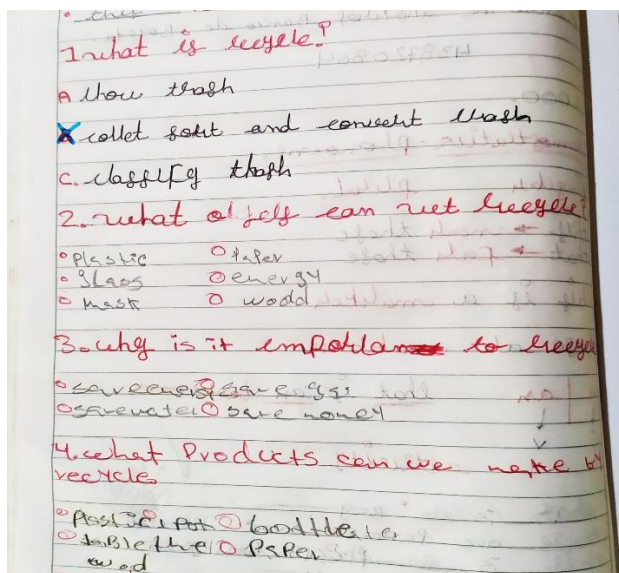 1 what is recycle?
A throw trash
collet sort and convert trash
C. classify trash
2. what objets can we recycle?
plastic paper
glass energy
mask wood
3. why is it important to recycle
save energy save gas
save water save money
4. what products can we make by
recycle
plastic pot
table the paper
wood